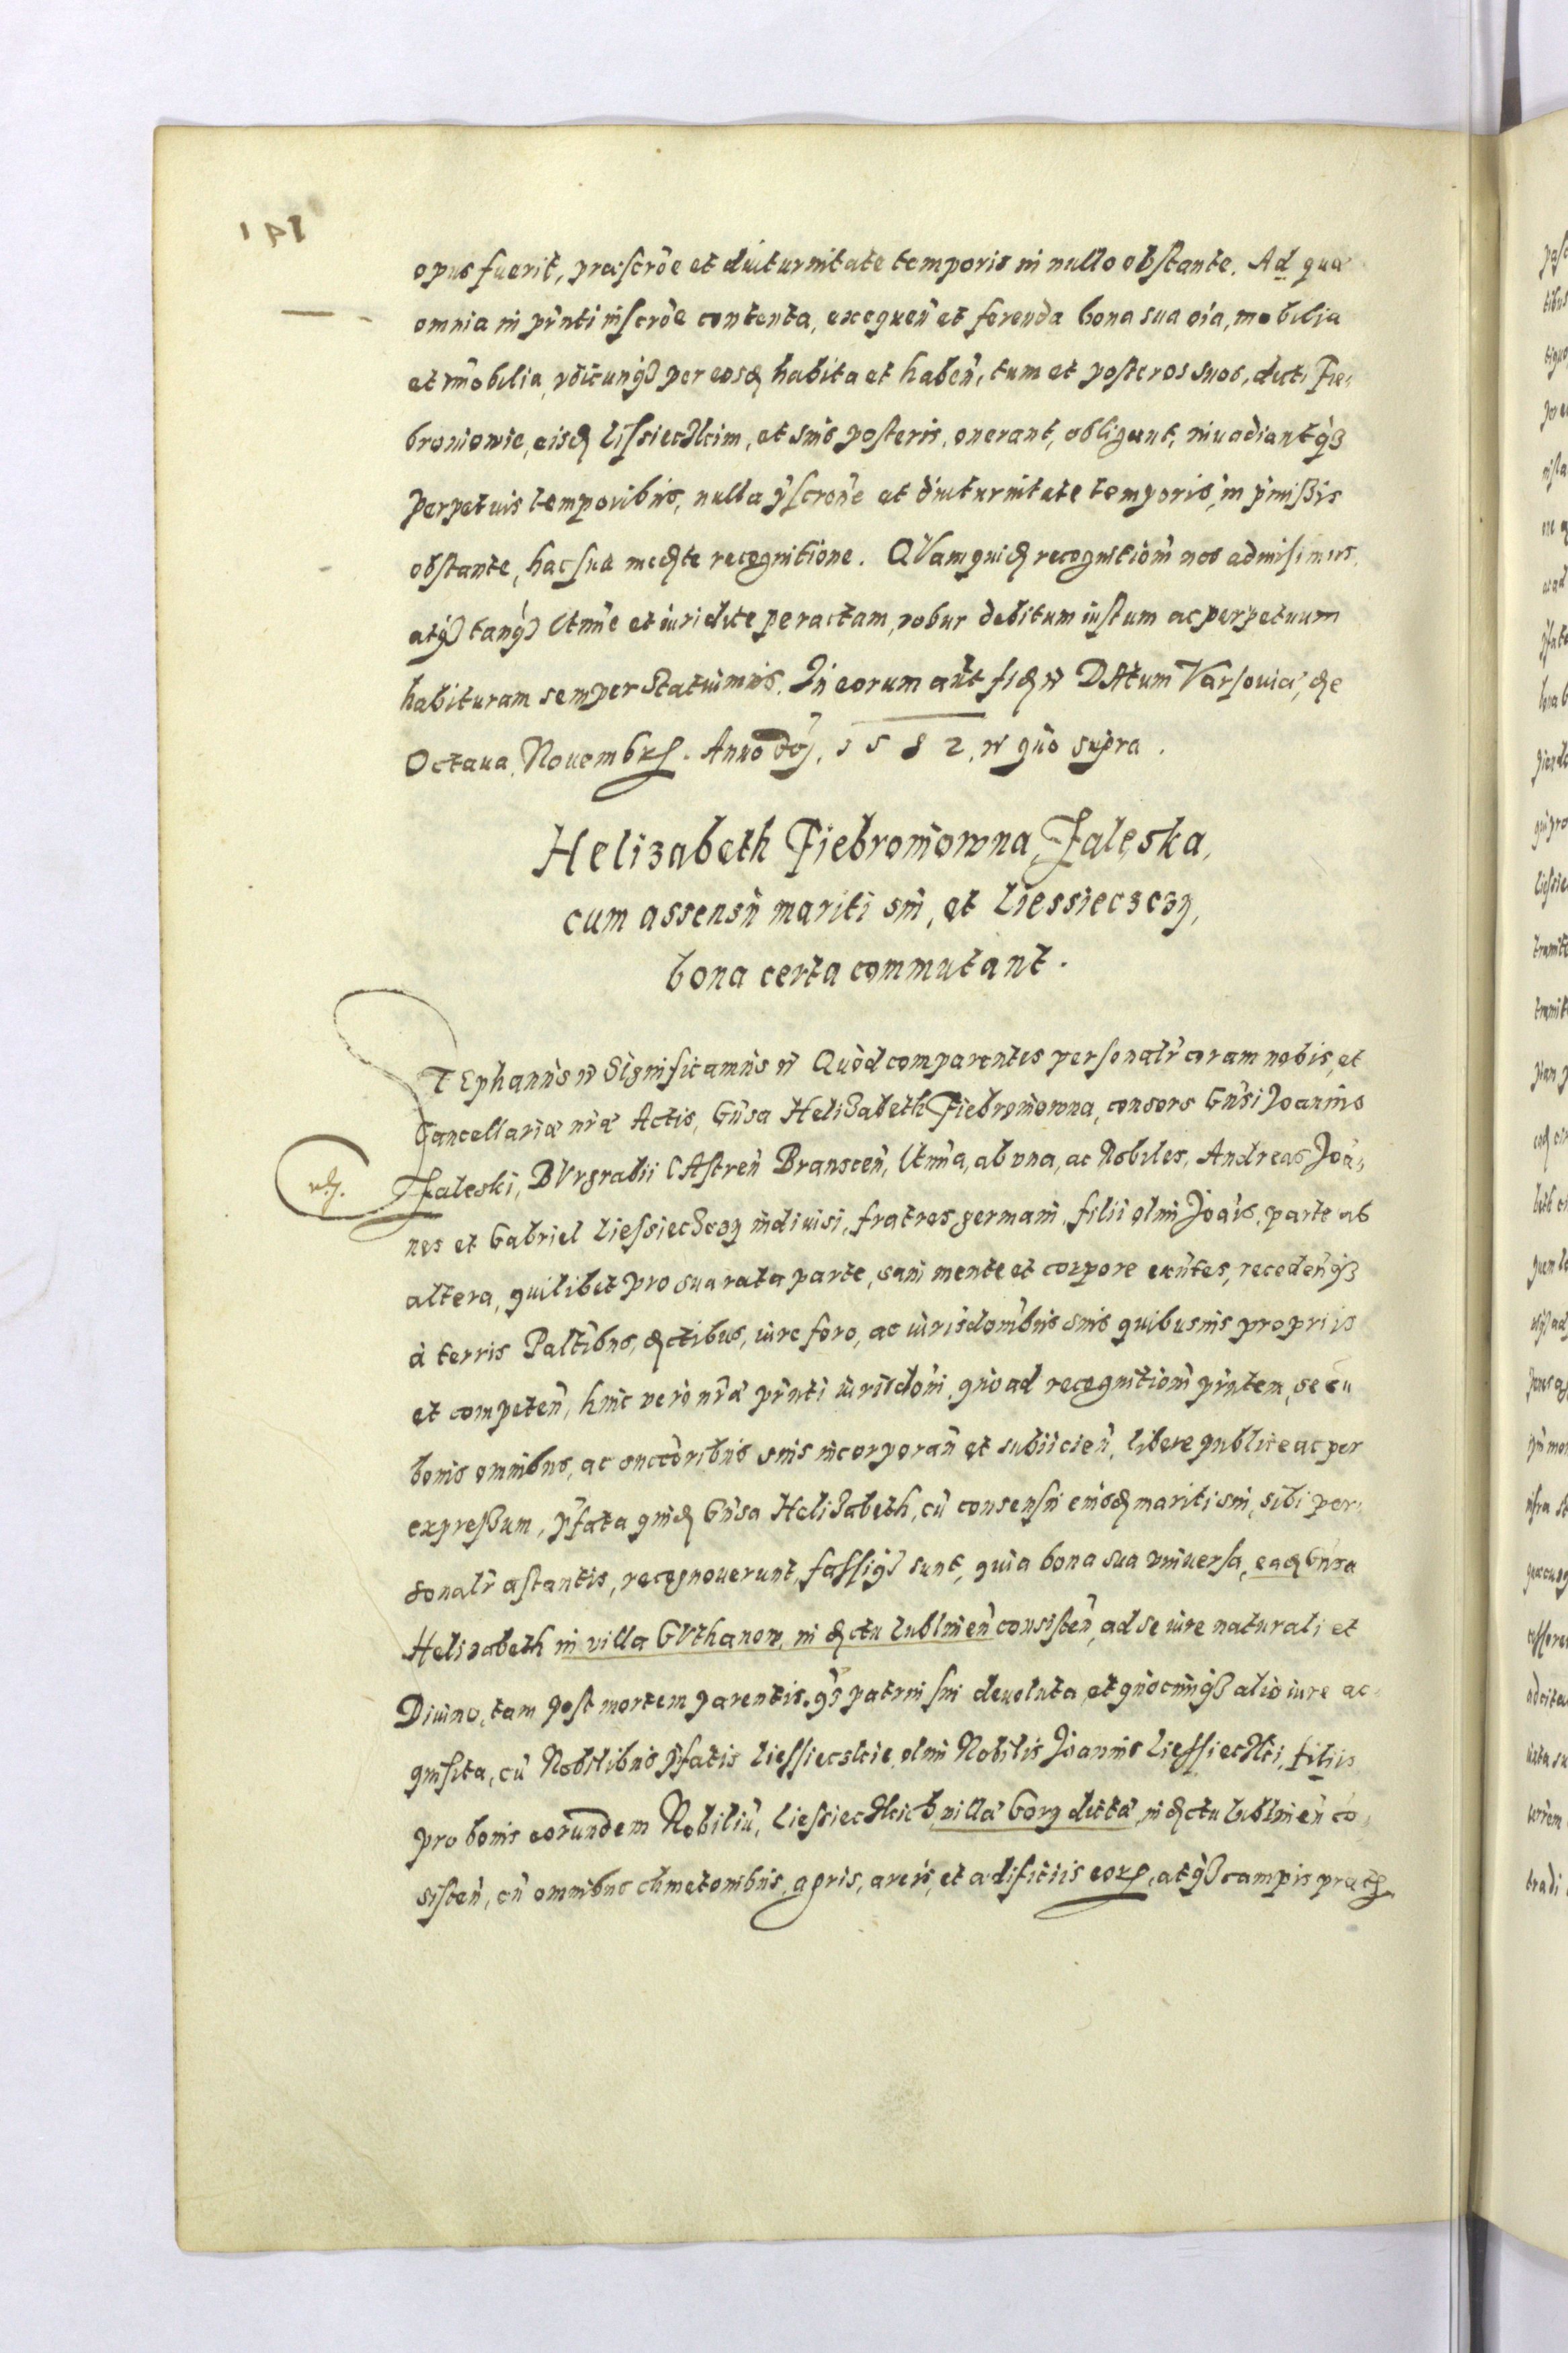 141
opus fuerit, præscrõe et diuturnitate temporis in nullo obstante. Ad quæ
omnia in pñti inscrõe contenta, exequeñ et ferenda bona sua oia, mobilia
et im̃obilia, vbicunq3 per eosd habita et habeñ, tum et posteros suos, dicti Fie,
broniowie, eisd Lissieczkim, et suis posteris, onerant, obligant, inuadiantq3
perpetuis temporibus, nulla p̃scrone et diuturnitate temporis, in p̃mißis
obstante, hac sua medte recognitione. QVam quid recognitiom̃ nos admisimus,
atq3 tanq3 l̃tim̃e et iuridice peractam, robur debitum iustum ac perpetuum
habituram semper statuimus. In eorum aũt fid etc DAtum Varsouiæ, de
Octaua Nouembris. Anno doj, 1582, etc quo supra.
Helizabeth Fiebroniowna, Zaleska,
cum assensu mariti sui, et Liessieczczy,
bona certa commutant.
STEphanus etc Significamus etc Quòd comparentes personalr̃ coram nobis, et
Cancellariæ nr̃æ Actis, Gñsa Helizabeth Fiebroniowna, consors Gñsi Joannis
Zaleski, BVrgrabii CAstreñ Bransceñ, l̃tim̃a, ab vna, ac Nobiles, Andreas, Joã,
nes et Gabriel Liessieczczy indiuisi, fratres germani, filii olim Joañis, parte ab
altera, quilibet pro sua rata parte, sani mente et corpore exñtes, recedeñq3
à terris Paltibus, dctibus, iure foro, ac iurisdom̃bus suis quibusuis propriis
et competeñ, huic vero nr̃æ pñti iurisdom̃i, quo ad recognitiom̃ pñtem, se cu
bonis omnibus, ac succòribus suis incorporañ et subiicieñ, libere publice ac per
expreßum, p̃fata quid Gñsa Helizabeth, cũ consensu eiusd mariti sui, sibi per,
sonalr̃ astantis, recognouerunt, fassiq3 sunt, quia bona sua vniuersa, ead Gñsa
Helizabeth in villa GVthanow, in dctu Lublineñ consisteñ, ad se iure naturali et
Diuino, tam post mortem parentis, q3 patrui sui deuoluta, et quocunq3 alio iure ac,
quisita, cũ Nobilibus p̃fatis Liessieczkie, olim Nobilis Joannis Liessieczki, filiis
pro bonis eorundem Nobiliũ, Liessieczkich, villa Gory dicta, in dctu Lublineñ cõ,
sisteñ, cũ omnibus cmetonibus, agris, areis, et ædificiis eorum, atq3 campis pratis